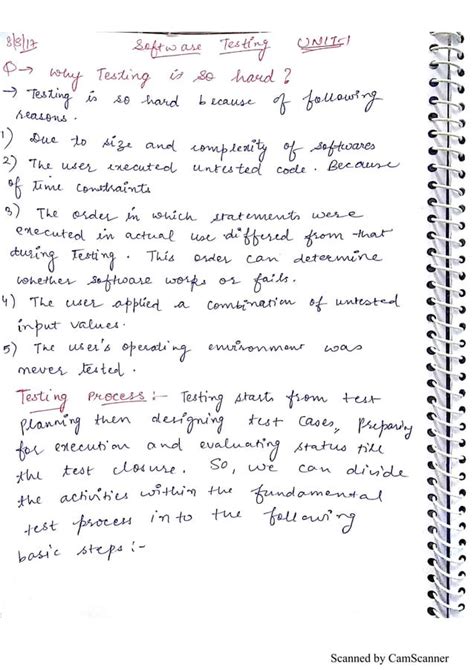 8/8/17 Software Testing UNIT-1
Q→ Why Testing is so hard?
→ Testing is so hard because of following
reasons.
1) Due to size and complexity of softwares
2) The user executed untested code. Because
of time constraints
3) The order in which statements were
executed in actual use differed from that
during testing. This order can determine
whether software works or fails.
4) The user applied a combination of untested
input values.
5) The user's operating environment was
never tested.
Testing Process:- Testing starts from test
planning then designing test cases, preparing
for execution and evaluating status till
the test closure. So, we can divide
the activities within the fundamental
test process in to the following
basic steps:-
Scanned by CamScanner